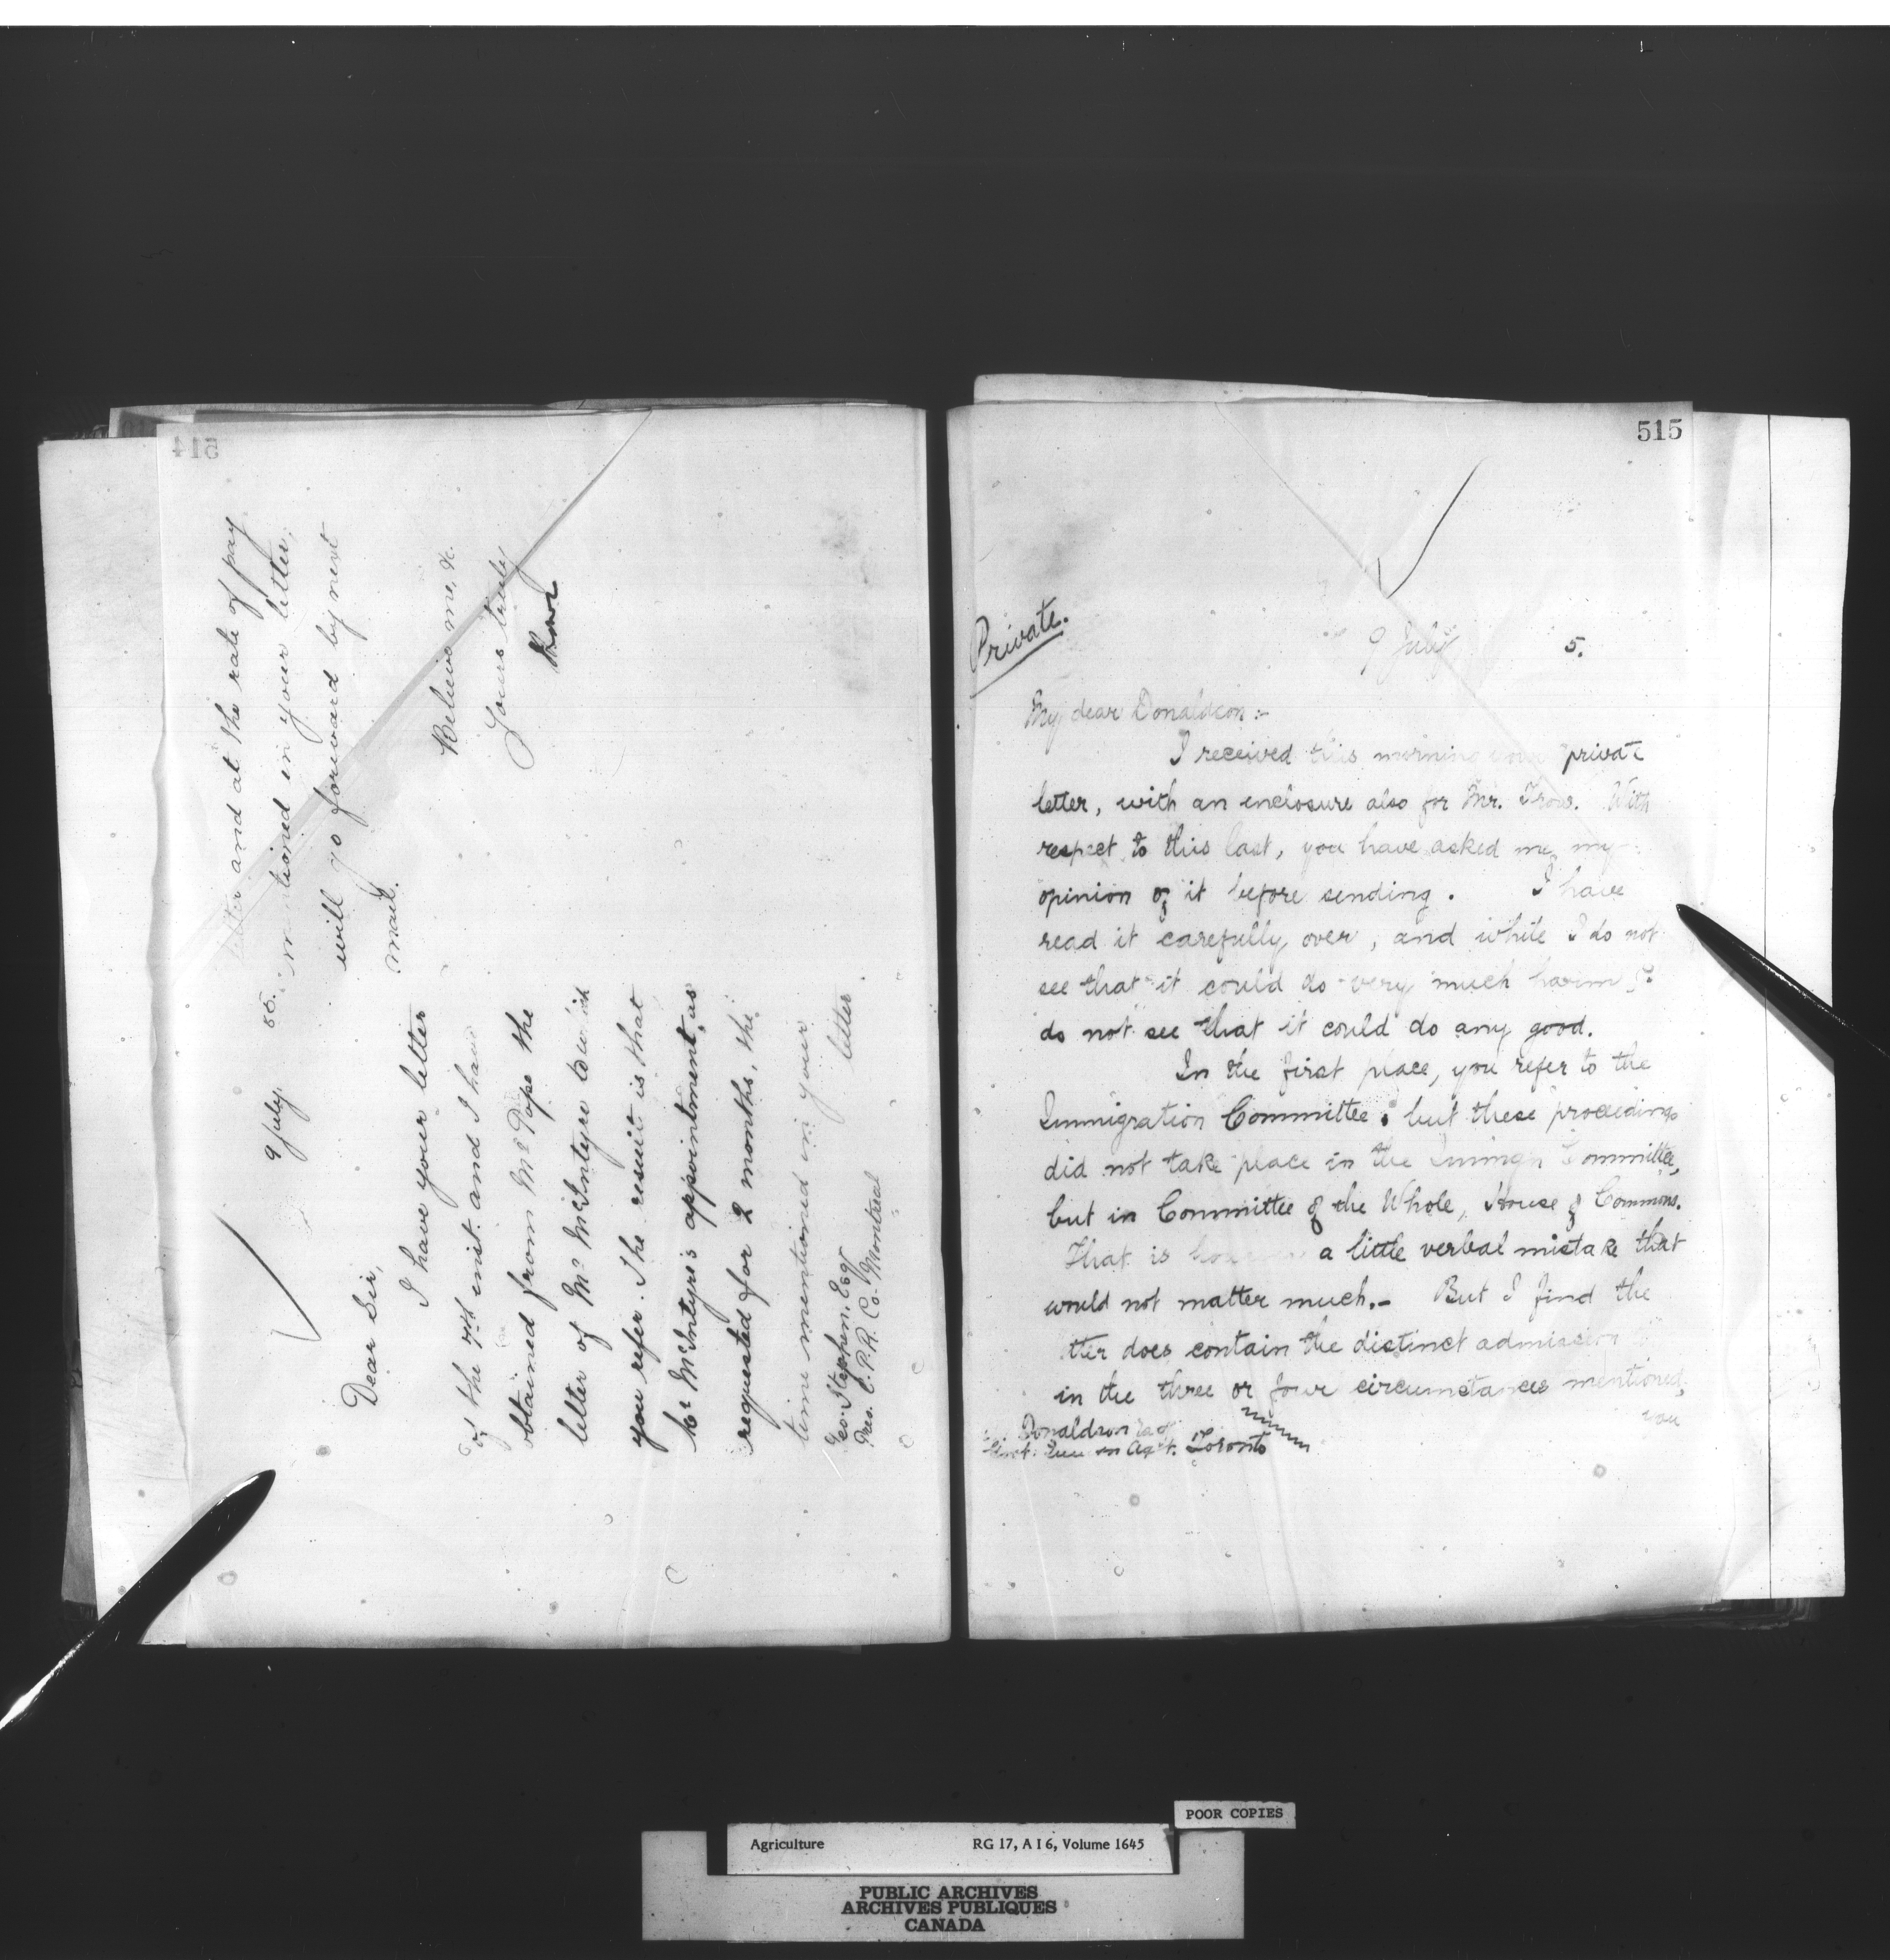 514
9 July 85.
Dear Sir,
I have your letter
of the 7th inst. and I have
obtained from Mr Pope the
letter of Mr McIntyre to which
you refer. The result is that
Mr McIntyre's appointment, as
requested for 2 months, the
time mentioned in your
letter
Geo. Stephen, Esqr
Pres. C.P.R. Co. Montreal
letter and at the rate of pay
mentioned in your letter,
will go forward by next
mail.
Believe me, &c.
Yours truly
515
Private.
9 July 5.
My dear Donaldson :-
I received this morning your private
letter, with an enclosure also for Mr. Trow. With
respect to this last, you have asked me my
opinion of it before sending. I have
read it carefully over, and while I do not
see that it could do very much harm I
do not see that it could do any good.
In the first place, you refer to the
Immigration Committee; but these proceedings
did not take place in the Immign Committee,
but in Committee of the Whole, House of Commons.
That is however a little verbal mistake that
would not matter much.- But I find the
tter does contain the distinct admission
in the three or four circumstances mentioned,
you
Donaldson Esq
Agt. Toronto
POOR COPIES
Agriculture RG 17, A I 6, Volume 1645
PUBLIC ARCHIVES
ARCHIVES PUBLIQUES
CANADA